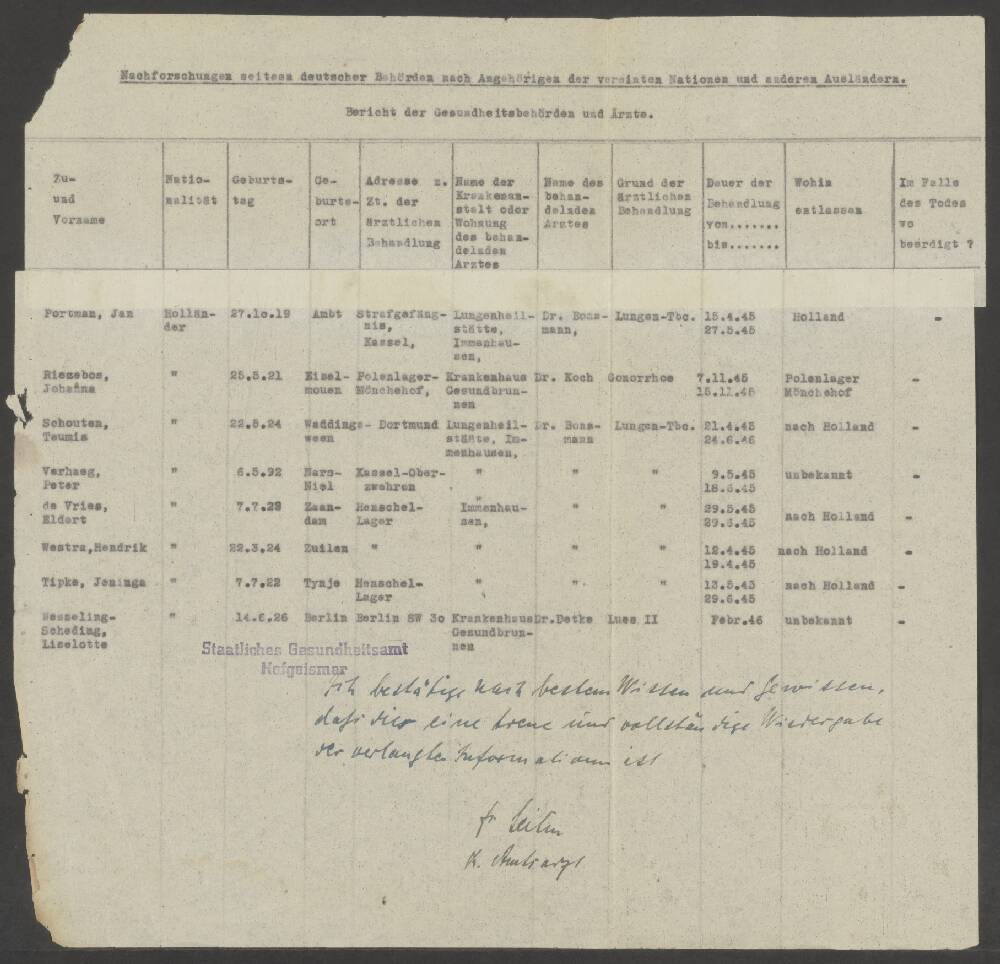 Nachforschungen seitens deutscher Behörden nach Angehörigen der vereinten Nationen und anderen Ausländern.
Bericht der Gesundheitsbehörden und Ärzte.
Zu- und Vorname | Natio- nalität | Geburts- tag | Ge- burts- ort | Adresse z. Zt. der ärztlichen Behandlung | Name der Krankenan- stalt oder Wohnung des behan- delnden Arztes | Name des behan- delnden Arztes | Grund der ärztlichen Behandlung | Dauer der Behandlung von....... bis....... | Wohin entlassen | Im Falle des Todes wo beerdigt ?
Portman, Jan Hollän- 27.10.19 Ambt Strafgefäng- Lungenheil- Dr. Bons- Lungen-Tbc. 15.4.45 Holland -
der nis, stätte, mann, 27.5.45
Kassel, Immenhau-
sen,
Riezebos, " 25.5.21 Eisel- Polenlager- Krankenhaus Dr. Koch Gonorrhoe 7.11.45 Polenlager -
Johanna mouen Mönchehof, Gesundbrun- 15.11.45 Mönchehof
nen
Schouten, " 22.5.24 Waddings- Dortmund Lungenheil- Dr. Bons- Lungen-Tbc. 21.4.45 nach Holland -
Teunis veen stätte, Im- mann 24.6.46
menhausen,
Verhaeg, " 6.5.92 Kassel-Ober- " " " 9.5.45 unbekannt -
Peter zwehren 18.6.45
de Vries, " 7.7.28 Zaan- Henschel- Immenhau- " " 29.5.45 nach Holland -
Eldert dam Lager sen, 29.6.45
Westra,Hendrik " 22.3.24 Zuilen " " " " 12.4.45 nach Holland -
19.4.45
Tipke, Jeninga " 7.7.22 Tynje Henschel- " " " 13.5.45 nach Holland -
Lager 29.6.45
Wesseling- " 14.6.26 Berlin Berlin SW 30 Krankenhaus Dr.Detke Lues II Febr.46 unbekannt -
Scheding, Gesundbrun-
Liselotte nen
Staatliches Gesundheitsamt
Hofgeismar
Ich bestätige nach bestem Wissen und Gewissen,
daß dies eine treue und vollständige Wiedergabe
der verlangten Informationen ist
K. Amtsarzt